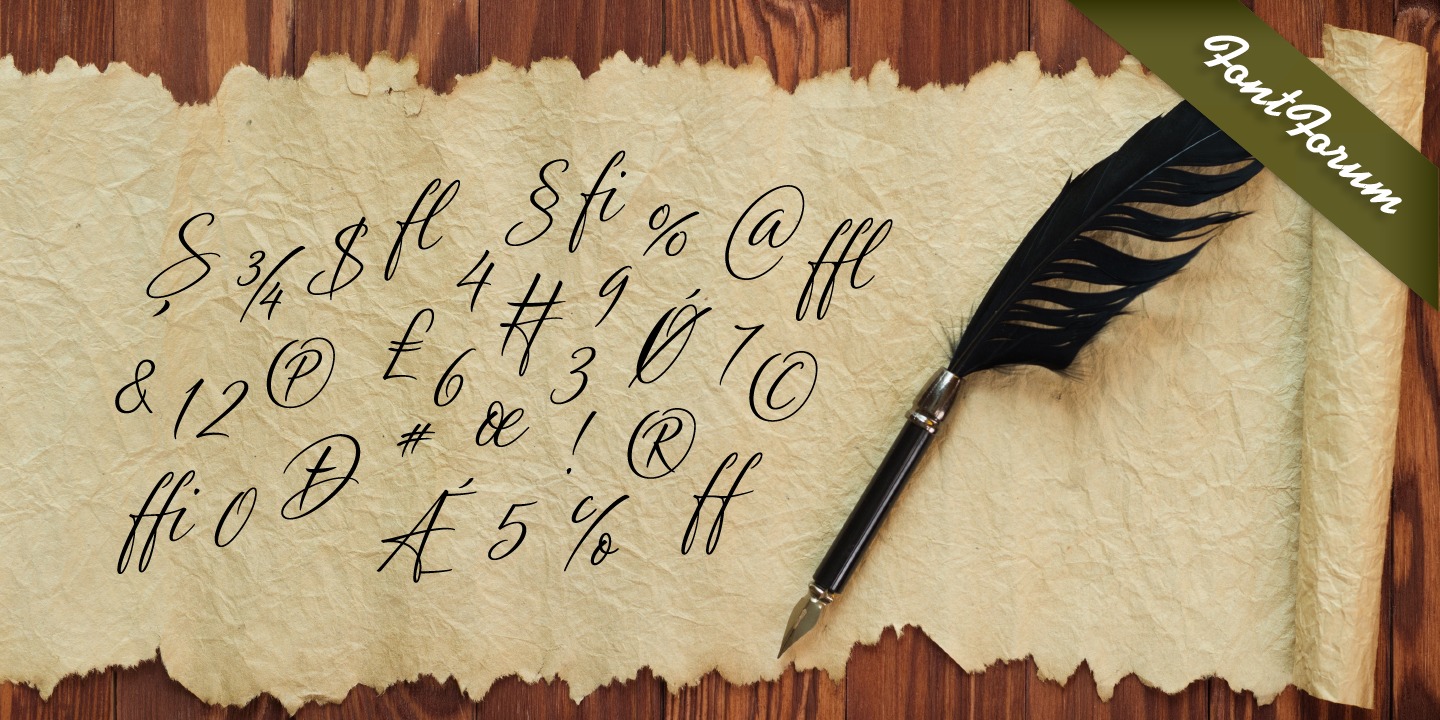 FontForum
Ș ¾ $ fl § fi % @ ffl
4 H 9 Ǿ 7
& 1 2 Ⓟ £ 6 3 ©
# œ ! ®
ffi 0 Đ Ǽ 5 ℅ ff